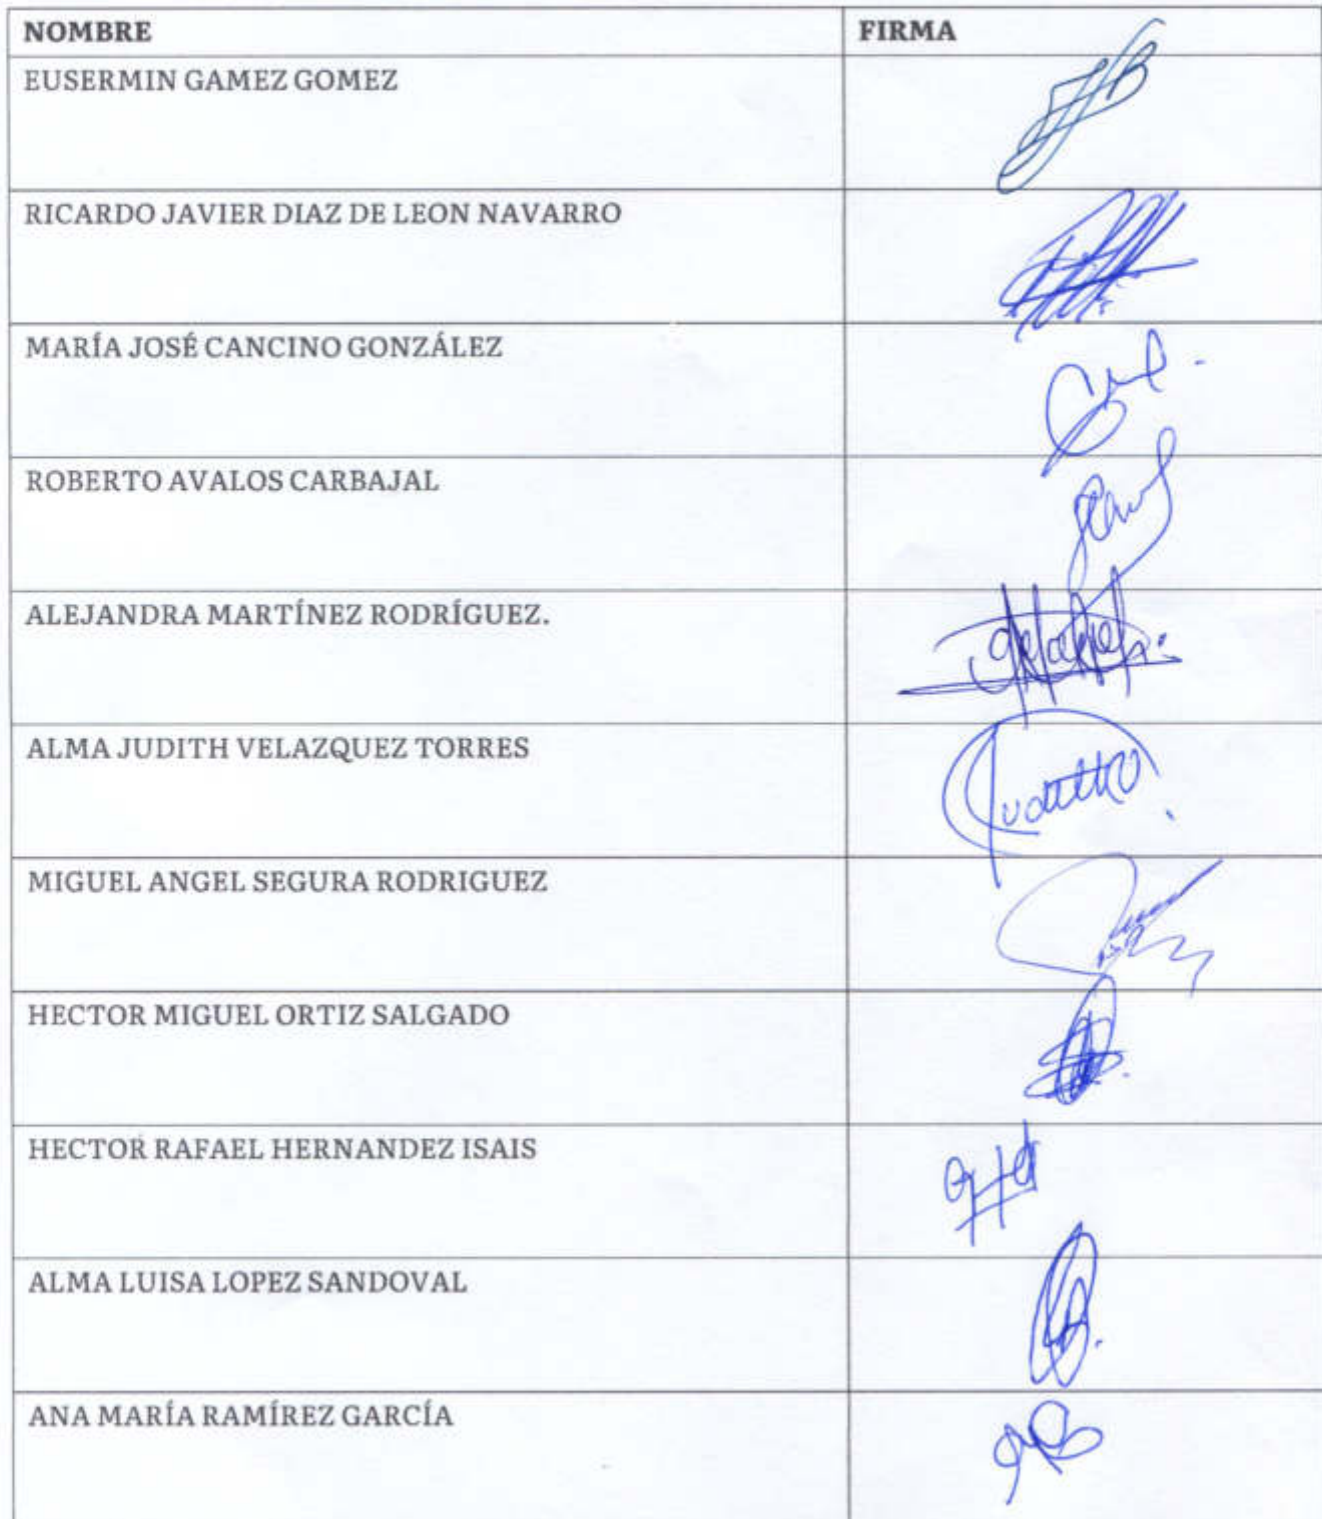 NOMBRE FIRMA
EUSERMIN GAMEZ GOMEZ
RICARDO JAVIER DIAZ DE LEON NAVARRO
MARÍA JOSÉ CANCINO GONZÁLEZ
ROBERTO AVALOS CARBAJAL
ALEJANDRA MARTÍNEZ RODRÍGUEZ.
ALMA JUDITH VELAZQUEZ TORRES
MIGUEL ANGEL SEGURA RODRIGUEZ
HECTOR MIGUEL ORTIZ SALGADO
HECTOR RAFAEL HERNANDEZ ISAIS
ALMA LUISA LOPEZ SANDOVAL
ANA MARÍA RAMÍREZ GARCÍA